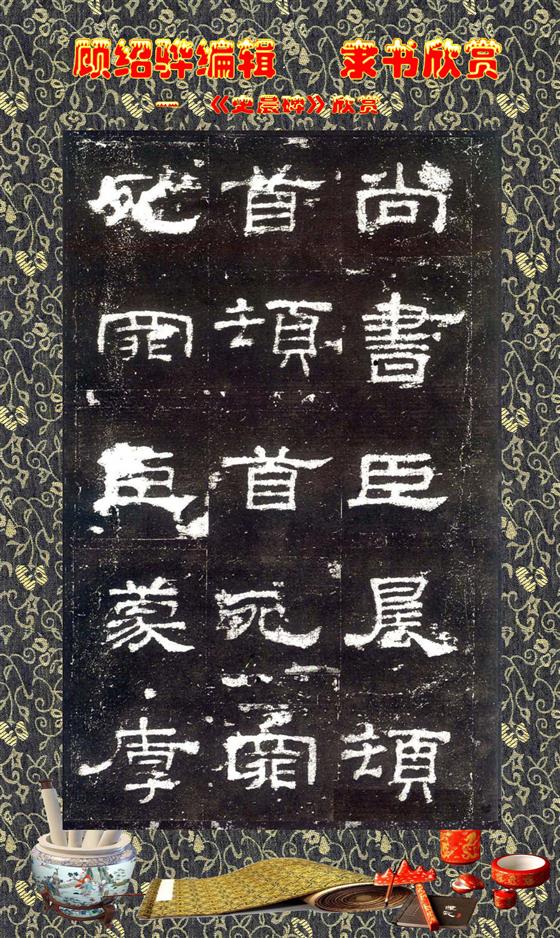 顾绍骅编辑 隶书欣赏
一 《史晨碑》欣赏
尚書臣晨頓
首頓首死罪
死罪臣蒙厚